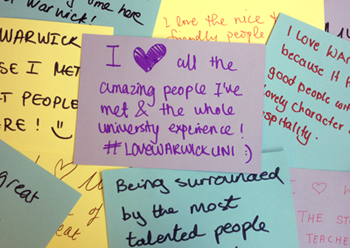 my time here
Warwick!
I love the nice &
friendly people
WARWICK
SE I MET
T PEOPLE
RE! :)
I ♥ all the
amazing people I've
met & the whole
university experience!
#LOVEWARWICKUNI :)
I love WAR
because it h
good people wit
lovely character
hospitality.
great
Being surrounded
by the most
talented people
I ♥ W
THE ST
TEACHE